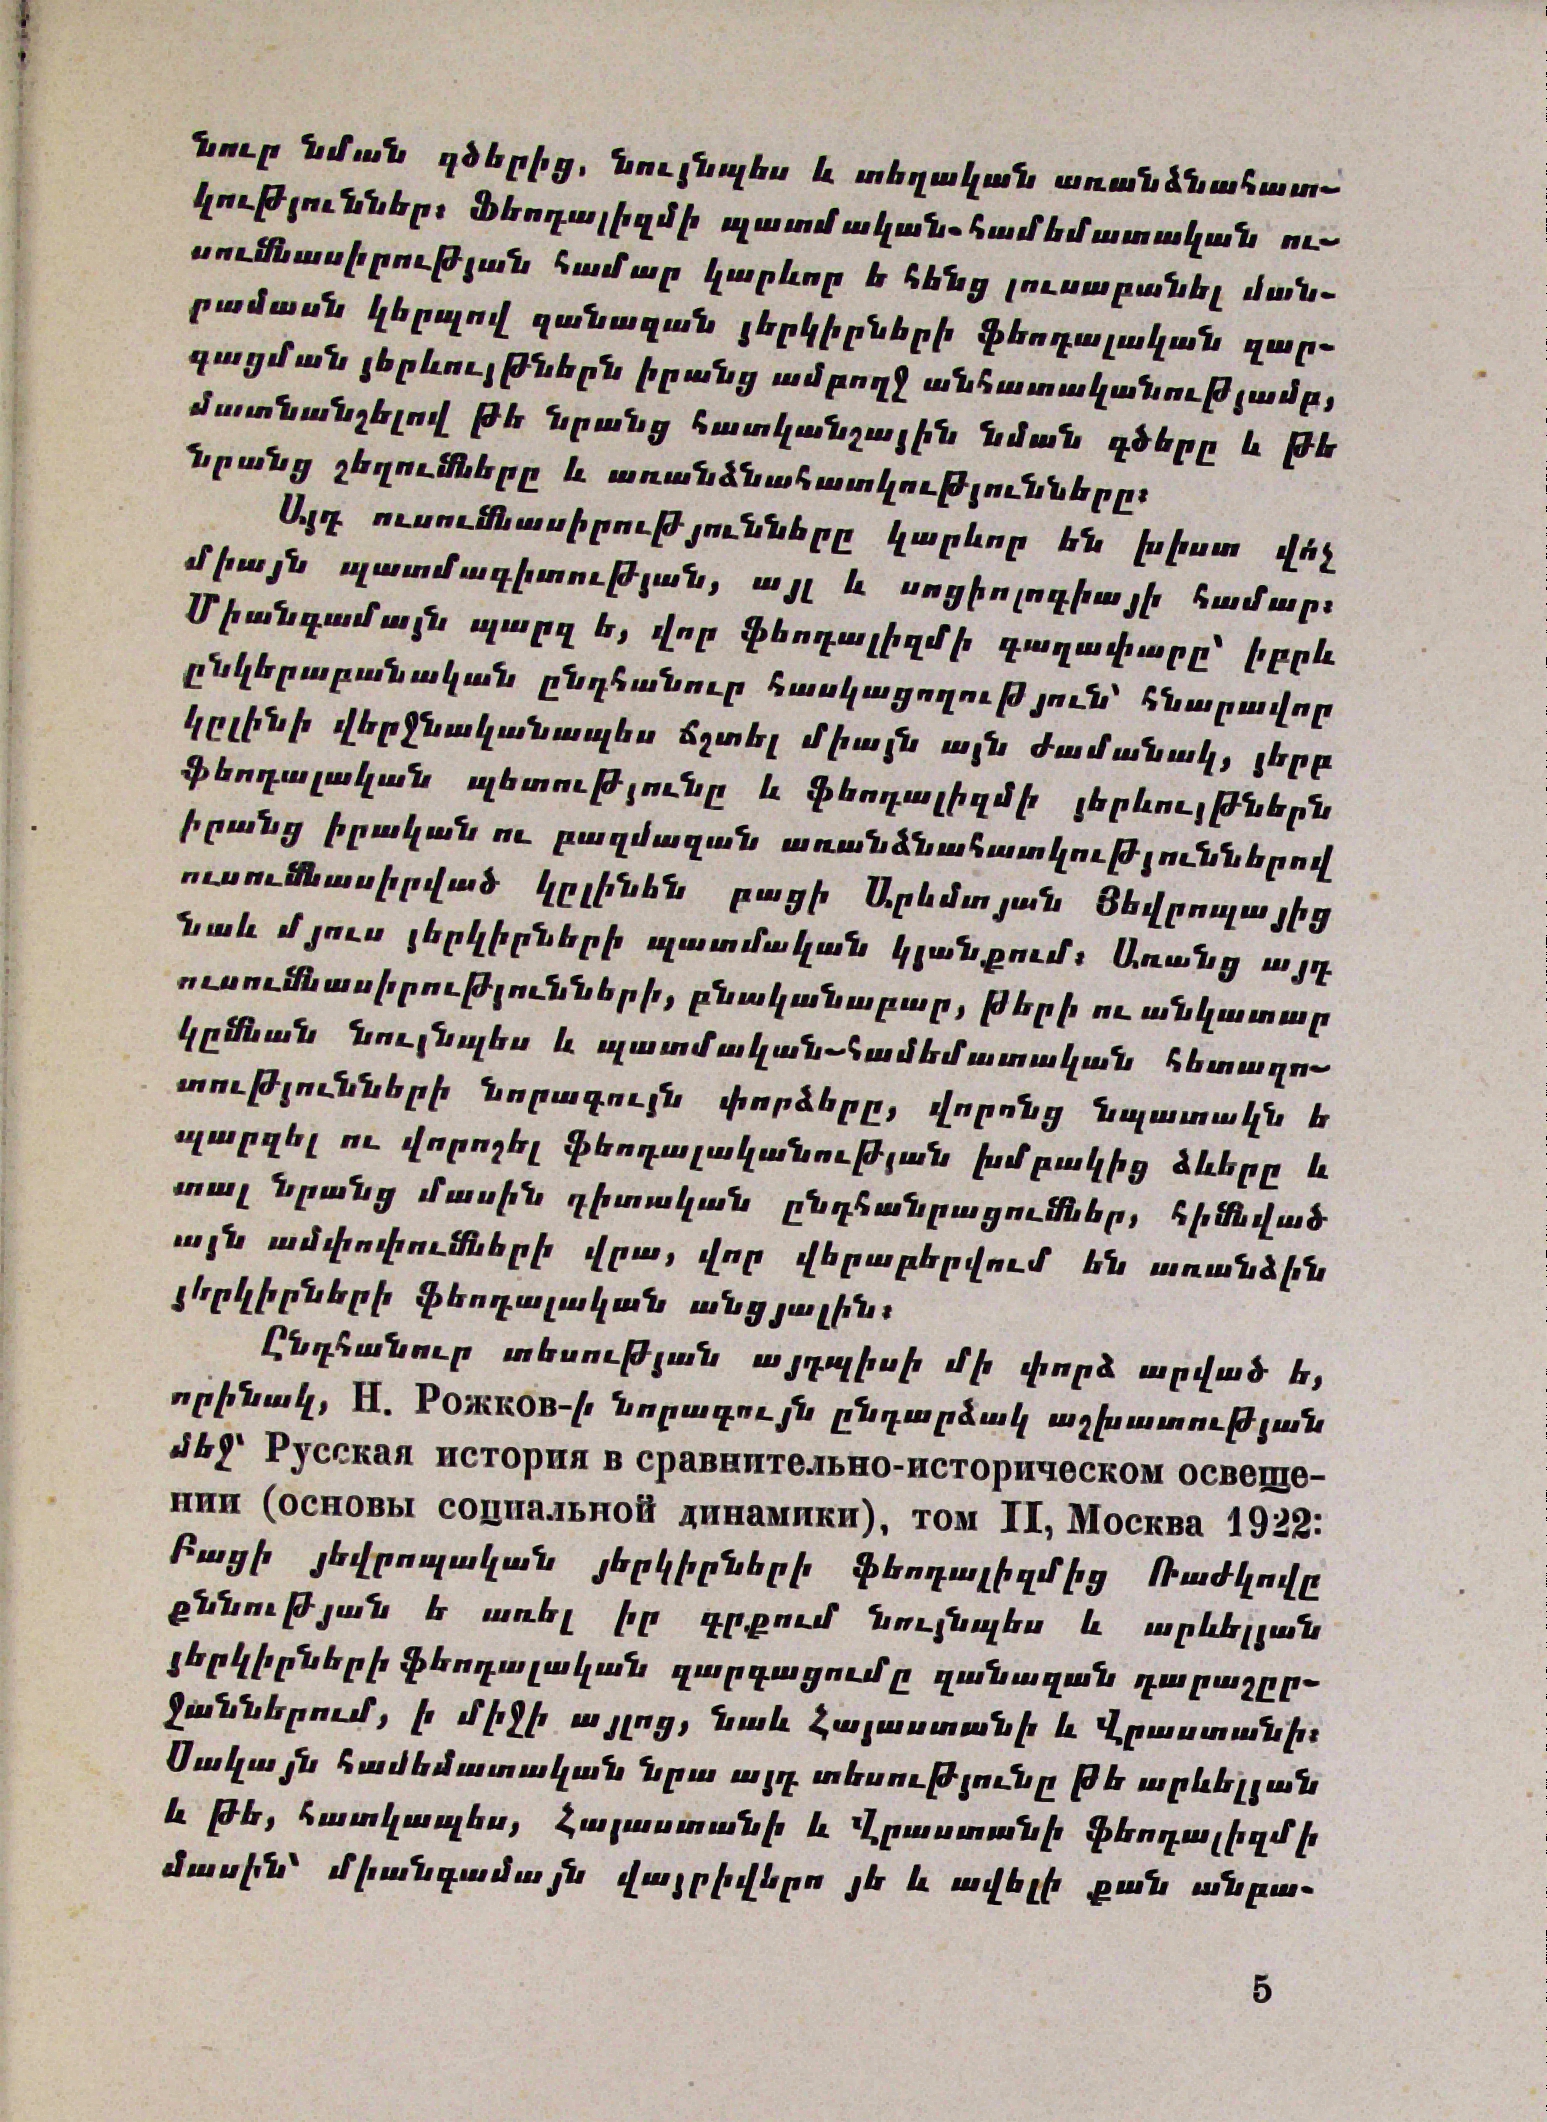 նուր նման գծերից, նույնպես և տեղական առանձնահատ-
կություններ։ Ֆեոդալիզմի պատմական-համեմատական ու-
սումնասիրության համար կարևոր ե հենց լուսաբանել ման-
րամասն կերպով զանազան յերկիրների ֆեոդալական զար-
գացման յերևույթներն իրանց ամբողջ անհատականությամբ,
մատնանշելով թե նրանց հատկանշային նման գծերը և թե
նրանց շեղումները և առանձնահատկությունները։
Այդ ուսումնասիրությունները կարևոր են խիստ վո՛չ
միայն պատմագիտության, այլ և սոցիոլոգիայի համար։
Միանգամայն պարզ ե, վոր ֆեոդալիզմի գաղափարը՝ իբրև
ընկերաբանական ընդհանուր հասկացողություն՝ հնարավոր
կըլինի վերջնականապես ճշտել միայն այն ժամանակ, յերբ
ֆեոդալական պետությունը և ֆեոդալիզմի յերևույթներն
իրանց իրական ու բազմազան առանձնահատկություններով
ուսումնասիրված կըլինեն բացի Արևմտյան Յեվրոպայից
նաև մյուս յերկիրների պատմական կյանքում։ Առանց այդ
ուսումնասիրությունների, բնականաբար, թերի ու անկատար
կըմնան նույնպես և պատմական-համեմատական հետազո-
տությունների նորագույն փորձերը, վորոնց նպատակն ե
պարզել ու վորոշել ֆեոդալականության խմբակից ձևերը և
տալ նրանց մասին գիտական ընդհանրացումներ, հիմնված
այն ամփոփումների վրա, վոր վերաբերվում են առանձին
յերկիրների ֆեոդալական անցյալին։
Ընդհանուր տեսության այդպիսի մի փորձ արված ե,
որինակ, Н. Рожков-ի նորագույն ընդարձակ աշխատության
մեջ՝ Русская история в сравнительно-историческом освеще-
нии (основы социальной динамики), том II, Москва 1922:
Բացի յեվրոպական յերկիրների ֆեոդալիզմից Ռաժկովը
քննության ե առել իր գրքում նույնպես և արևելյան
յերկիրների ֆեոդալական զարգացումը զանազան դարաշըր-
ջաններում, ի միջի այլոց, նաև Հայաստանի և Վրաստանի։
Սակայն համեմատական նրա այդ տեսությունը թե արևելյան
և թե, հատկապես, Հայաստանի և Վրաստանի ֆեոդալիզմի
մասին՝ միանգամայն վայրիվերո յե և ավելի քան անբա-
5